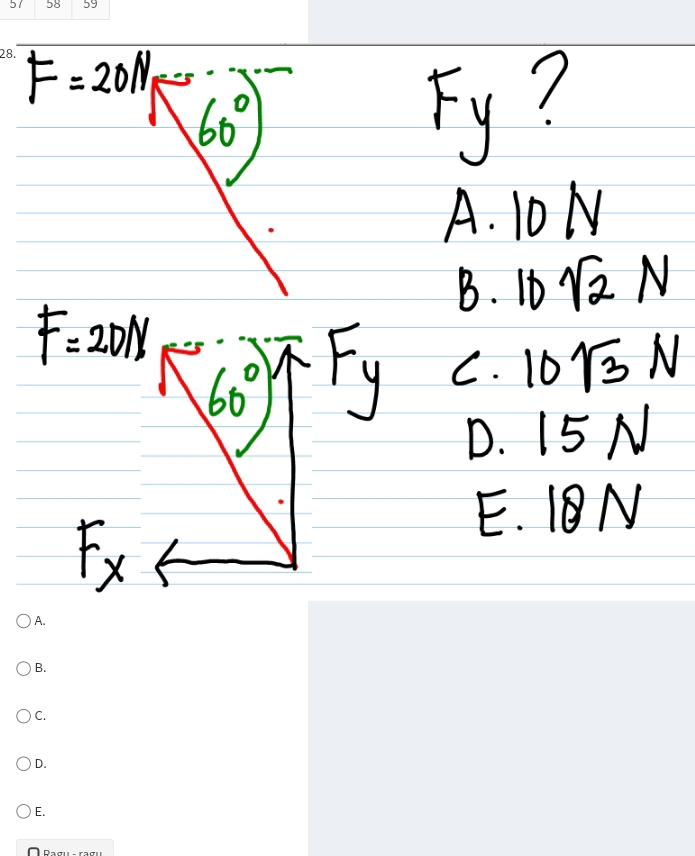 57 58 59
28.
F = 20N
60°
Fy ?
A. 10 N
B. 10 √2 N
C. 10 √3 N
D. 15 N
E. 18 N
F = 20N
60°
Fy
Fx
A.
B.
C.
D.
E.
Ragu - ragu